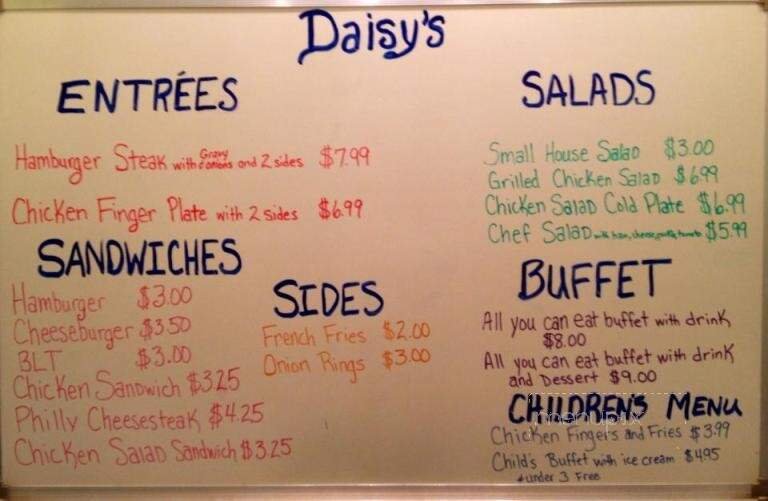 Daisy's
ENTRÉES
Hamburger Steak with Gravy & onions and 2 sides $7.99
Chicken Finger Plate with 2 sides $6.99
SANDWICHES
Hamburger $3.00
Cheeseburger $3.50
BLT $3.00
Chicken Sandwich $3.25
Philly Cheesesteak $4.25
Chicken Salad Sandwich $3.25
SIDES
French Fries $2.00
Onion Rings $3.00
SALADS
Small House Salad $3.00
Grilled Chicken Salad $6.99
Chicken Salad Cold Plate $6.99
Chef Salad with ham, cheese, tomato $5.99
BUFFET
All you can eat buffet with drink
$8.00
All you can eat buffet with drink
and Dessert $9.00
CHILDREN'S MENU
Chicken Fingers and Fries $3.99
Child's Buffet with ice cream $4.95
*under 3 Free
menupix